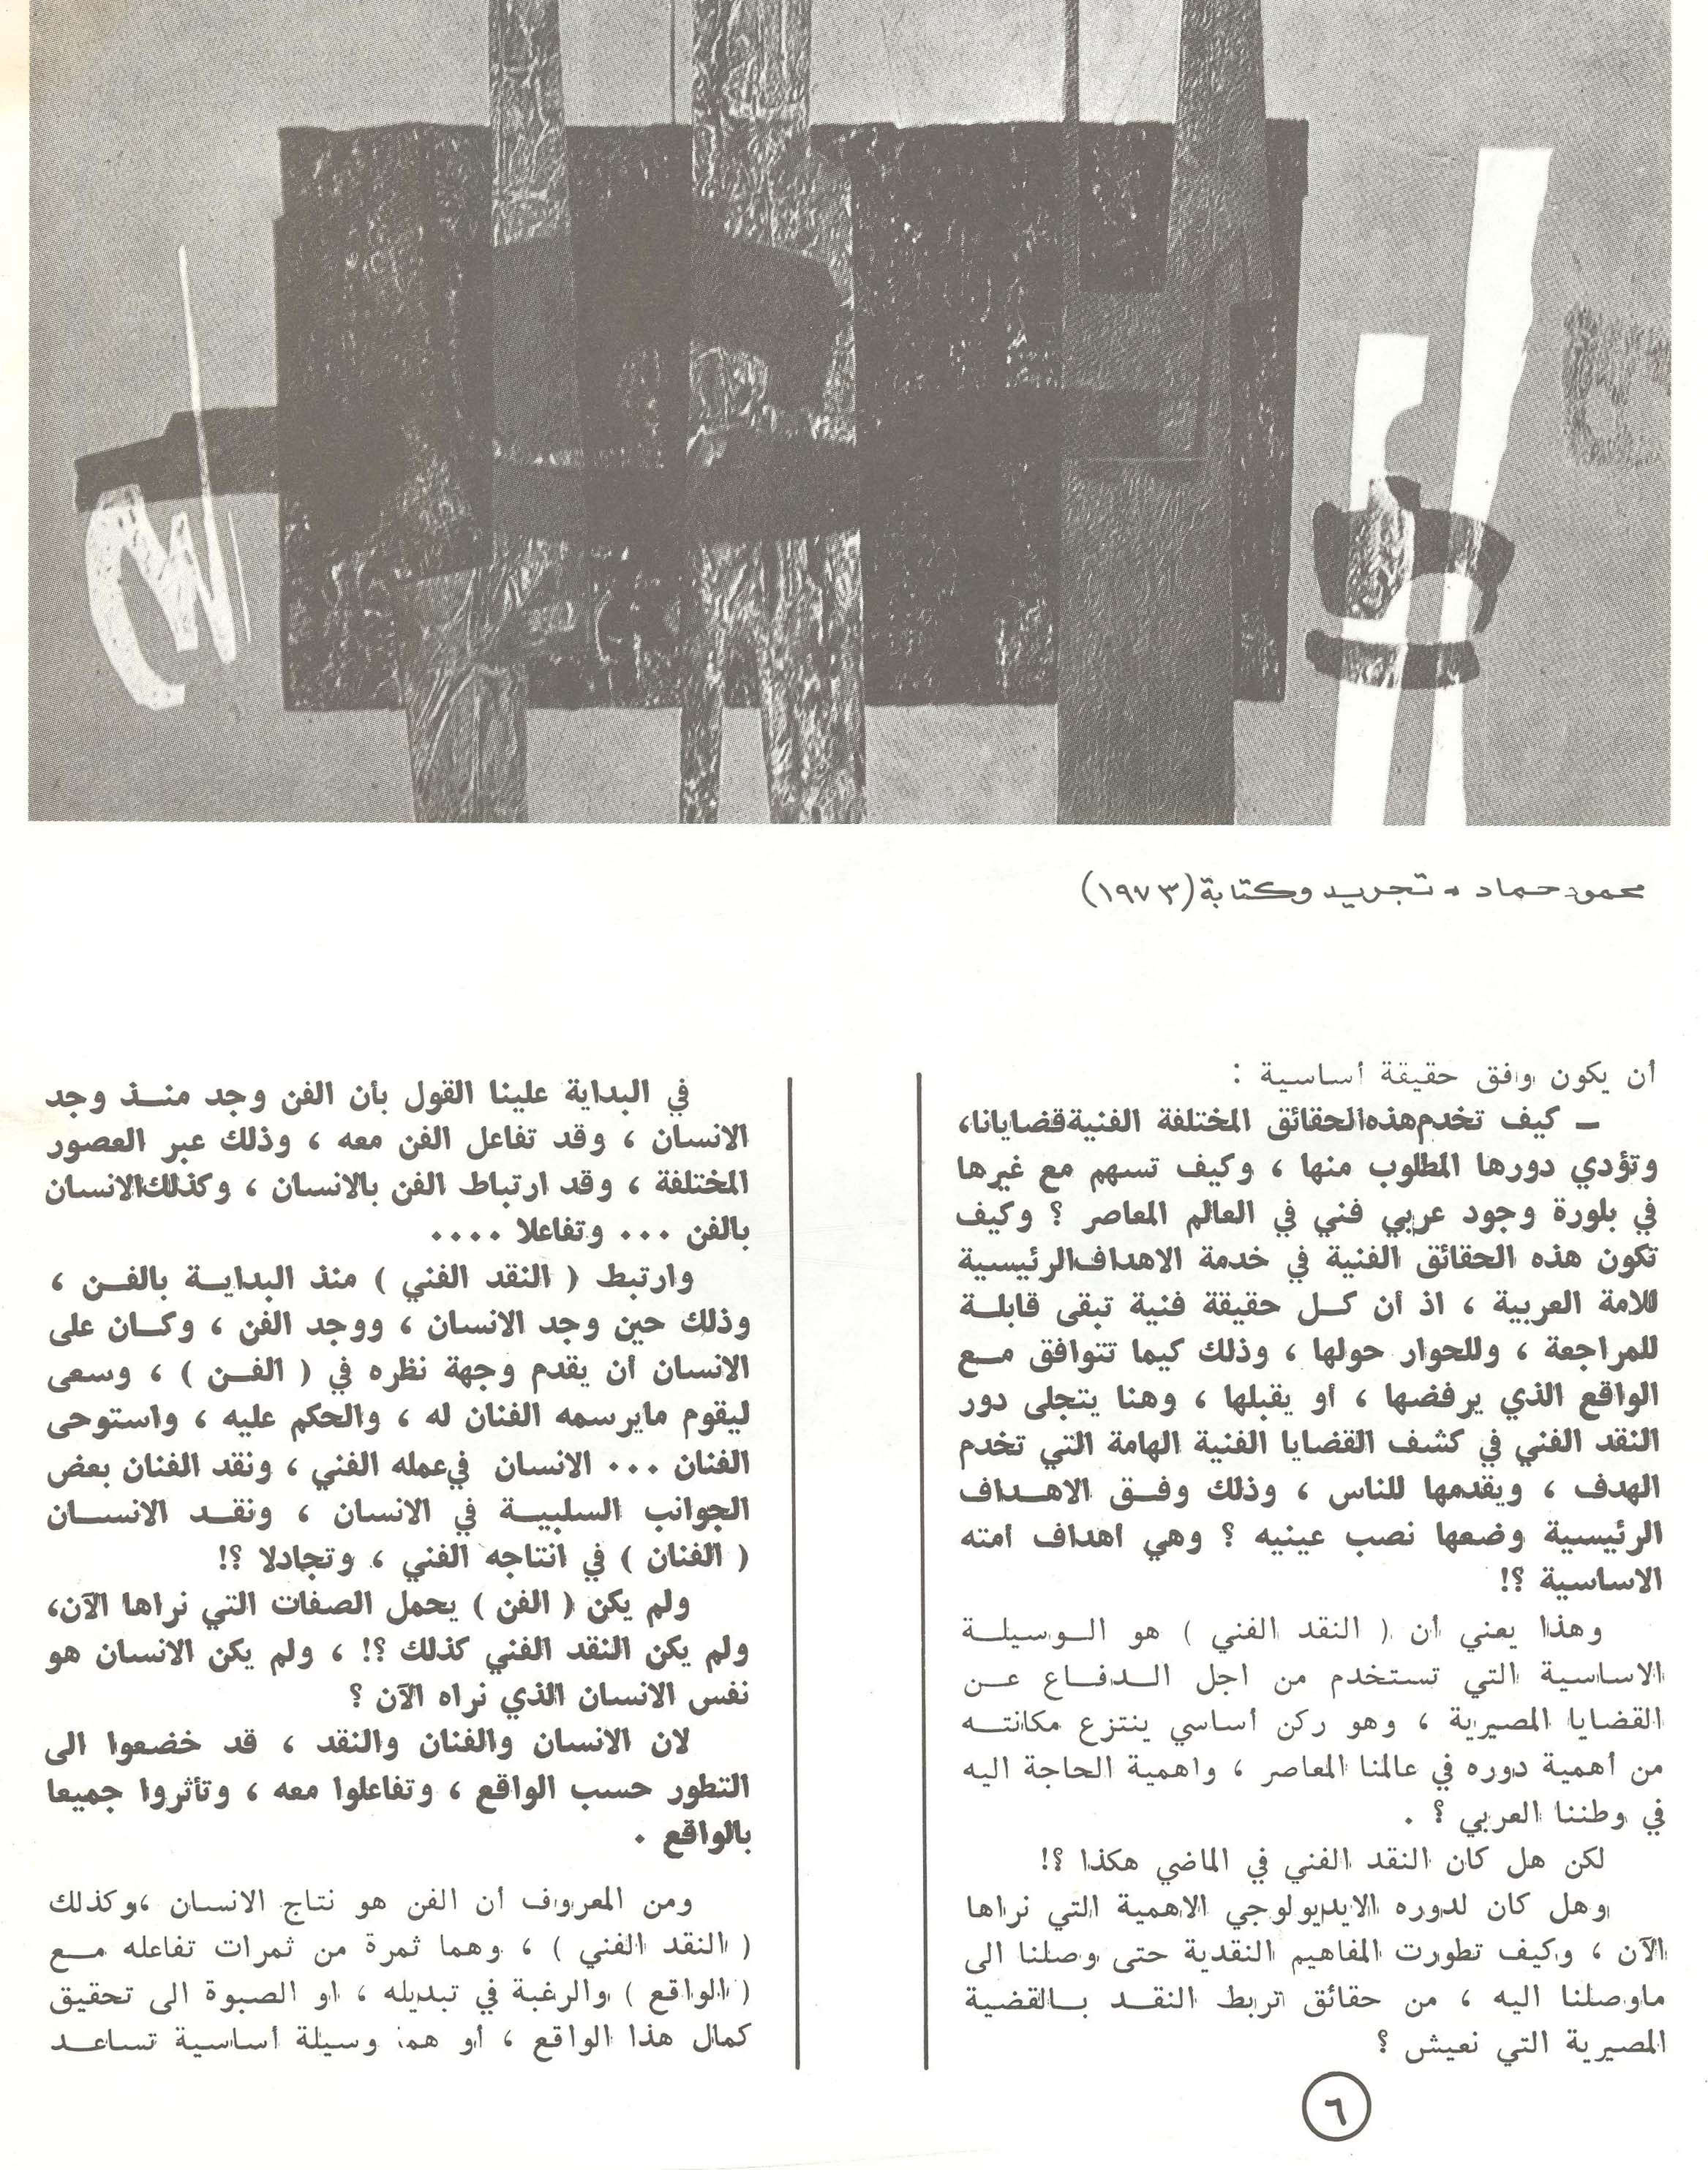 محمود حماد ، تجريد وكتابة (١٩٧٣)
أن يكون وافق حقيقة أساسية :
ــ كيف تخدم هذه الحقائق المختلفة الفنية قضايانا،
وتؤدي دورها المطلوب منها ، وكيف تسهم مع غيرها
في بلورة وجود عربي فني في العالم المعاصر ؟ وكيف
تكون هذه الحقائق الفنية في خدمة الاهداف الرئيسية
للامة العربية ، اذ أن كل حقيقة فنية تبقى قابلة
للمراجعة ، وللحوار حولها ، وذلك كيما تتوافق مع
الواقع الذي يرفضها ، أو يقبلها ، وهنا يتجلى دور
النقد الفني في كشف القضايا الفنية الهامة التي تخدم
الهدف ، ويقدمها للناس ، وذلك وفق الاهداف
الرئيسية وضعها نصب عينيه ؟ وهي اهداف امته
الاساسية ؟!
وهذا يعني أن ( النقد الفني ) هو الوسيلة
الاساسية التي تستخدم من اجل الدفاع عن
القضايا المصيرية ، وهو ركن أساسي ينتزع مكانته
من أهمية دوره في عالمنا المعاصر ، واهمية الحاجة اليه
في وطننا العربي ؟ .
لكن هل كان النقد الفني في الماضي هكذا ؟!
وهل كان لدوره الايديولوجي الاهمية التي نراها
الآن ، وكيف تطورت المفاهيم النقدية حتى وصلنا الى
ماوصلنا اليه ، من حقائق تربط النقد بالقضية
المصيرية التي نعيش ؟
في البداية علينا القول بأن الفن وجد منذ وجد
الانسان ، وقد تفاعل الفن معه ، وذلك عبر العصور
المختلفة ، وقد ارتباط الفن بالانسان ، وكذلك الانسان
بالفن ... وتفاعلا ....
وارتبط ( النقد الفني ) منذ البداية بالفن ،
وذلك حين وجد الانسان ، ووجد الفن ، وكان على
الانسان أن يقدم وجهة نظره في ( الفن ) ، وسعى
ليقوم مايرسمه الفنان له ، والحكم عليه ، واستوحى
الفنان ... الانسان في عمله الفني ، ونقد الفنان بعض
الجوانب السلبية في الانسان ، ونقد الانسان
( الفنان ) في انتاجه الفني ، وتجادلا ؟!
ولم يكن ( الفن ) يحمل الصفات التي نراها الآن،
ولم يكن النقد الفني كذلك ؟! ، ولم يكن الانسان هو
نفس الانسان الذي نراه الآن ؟
لان الانسان والفنان والنقد ، قد خضعوا الى
التطور حسب الواقع ، وتفاعلوا معه ، وتأثروا جميعا
بالواقع .
ومن المعروف أن الفن هو نتاج الانسان ، وكذلك
( النقد الفني ) ، وهما ثمرة من ثمرات تفاعله مع
( الواقع ) والرغبة في تبديله ، او الصبوة الى تحقيق
كمال هذا الواقع ، أو هما وسيلة أساسية تساعد
٦